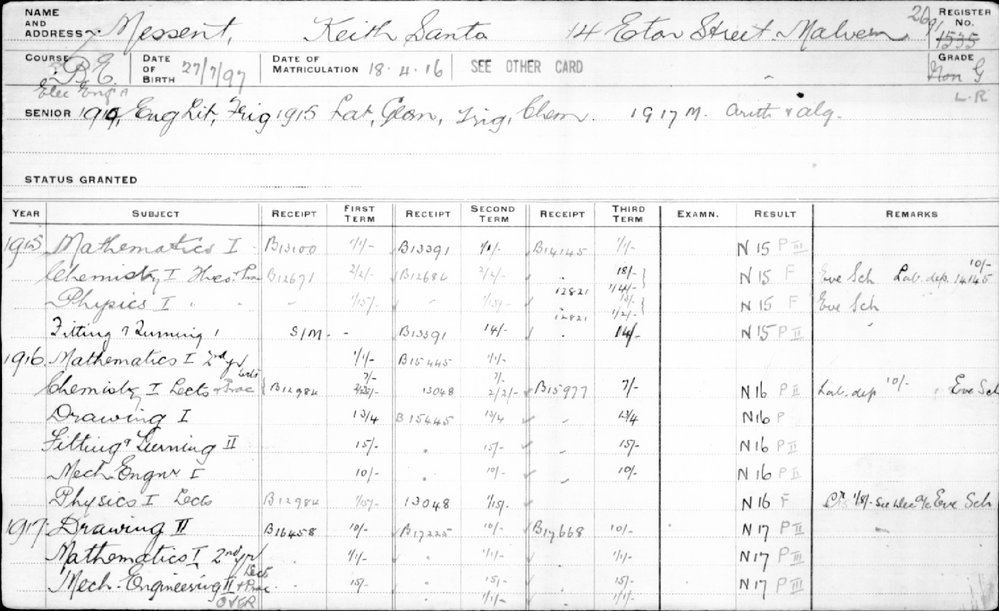 NAME AND ADDRESS Messent, Keith Santo 14 Eton Street Malvern REGISTER No. 1535
COURSE B.E. DATE OF BIRTH 27/7/97 DATE OF MATRICULATION 18.4.16 SEE OTHER CARD GRADE Non G
Elec Eng A L.R
SENIOR Eng Lit, Trig 1915 Lat, Geom, Trig, Chem. 1917 M. arith & alg.
STATUS GRANTED
YEAR SUBJECT RECEIPT FIRST TERM RECEIPT SECOND TERM RECEIPT THIRD TERM EXAMN. RESULT REMARKS
1915 Mathematics I B13100 1/1/- B13391 1/1/- B14145 1/1/- N 15 P III
10/-
Chemistry I Theo + Prac B12671 2/2/- B12684 2/2/- " 18/- N 15 F Eve Sch Lab. dep. 14145
12821 1/4/-
Physics I " " 1/15/- " 1/15/- " N 15 F Eve Sch
12821 1/2/-
Fitting & Turning I S/M. - B13391 14/- " 14/- N 15 P II
1916 Mathematics I 2nd yr 1/1/- B15445 1/1/-
Lects 7/- 7/-
Chemistry I Lects + Prac B12984 2/2/- 13048 2/2/- B15977 7/- N 16 P II Lab. dep 10/- Eve Sch
Drawing I 13/4 B15445 13/4 " 13/4 N 16 P
Fitting & Turning II 15/- " 15/- " 15/- N 16 P II
Mech Engnr I 10/- " 10/- " 10/- N 16 P II
Physics I Lects B12984 1/15/- 13048 1/15/- N 16 F Eve Sch
1917 Drawing II B16458 10/- B17225 10/- B17668 10/- N 17 P II
Mathematics I 2nd yr 1/1/- " 1/1/- " 1/1/- N 17 P III
Lects
Mech. Engineering II + Prac 15/- " 15/- " 15/- N 17 P III
OVER 1/1/- 1/1/-